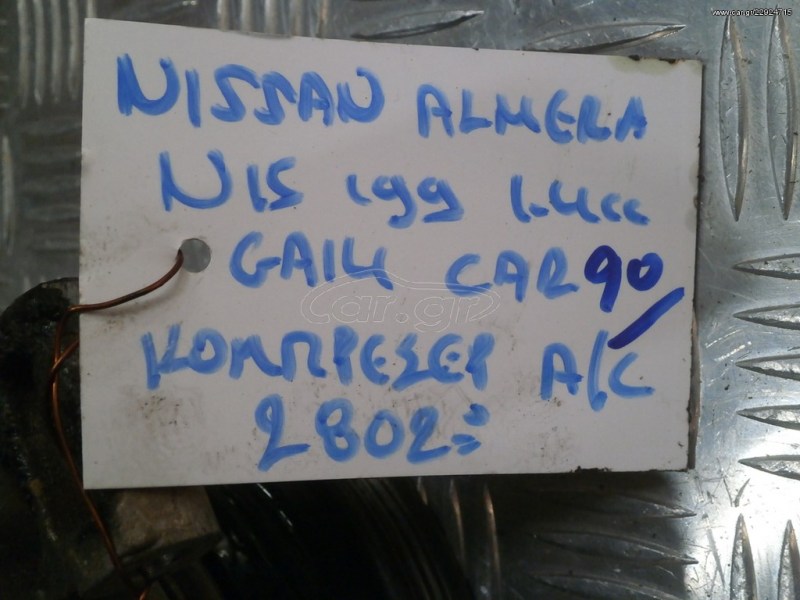 www.car.gr/22924715
NISSAN ALMERA
N15 199 1.4cc
GA14 CAR 90/
ΚΟΜΠΡΕΣΕΡ A/C
2802
car.gr